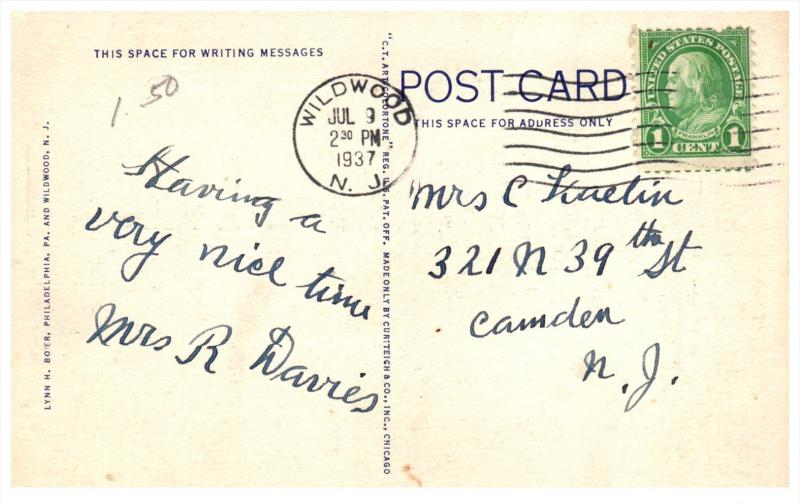 THIS SPACE FOR WRITING MESSAGES
1.50
Having a
very nice time
Mrs R Davies
LYNN H. BOYER, PHILADELPHIA, PA. AND WILDWOOD, N. J.
"C.T. ART-COLORTONE" REG. U.S. PAT. OFF. MADE ONLY BY CURT TEICH & CO., INC., CHICAGO
WILDWOOD
JUL 9
2 30 PM
1937
N. J.
POST CARD
THIS SPACE FOR ADDRESS ONLY
UNITED STATES POSTAGE
FRANKLIN
1 CENT 1
Mrs C
321 N 39th St
Camden
N. J.